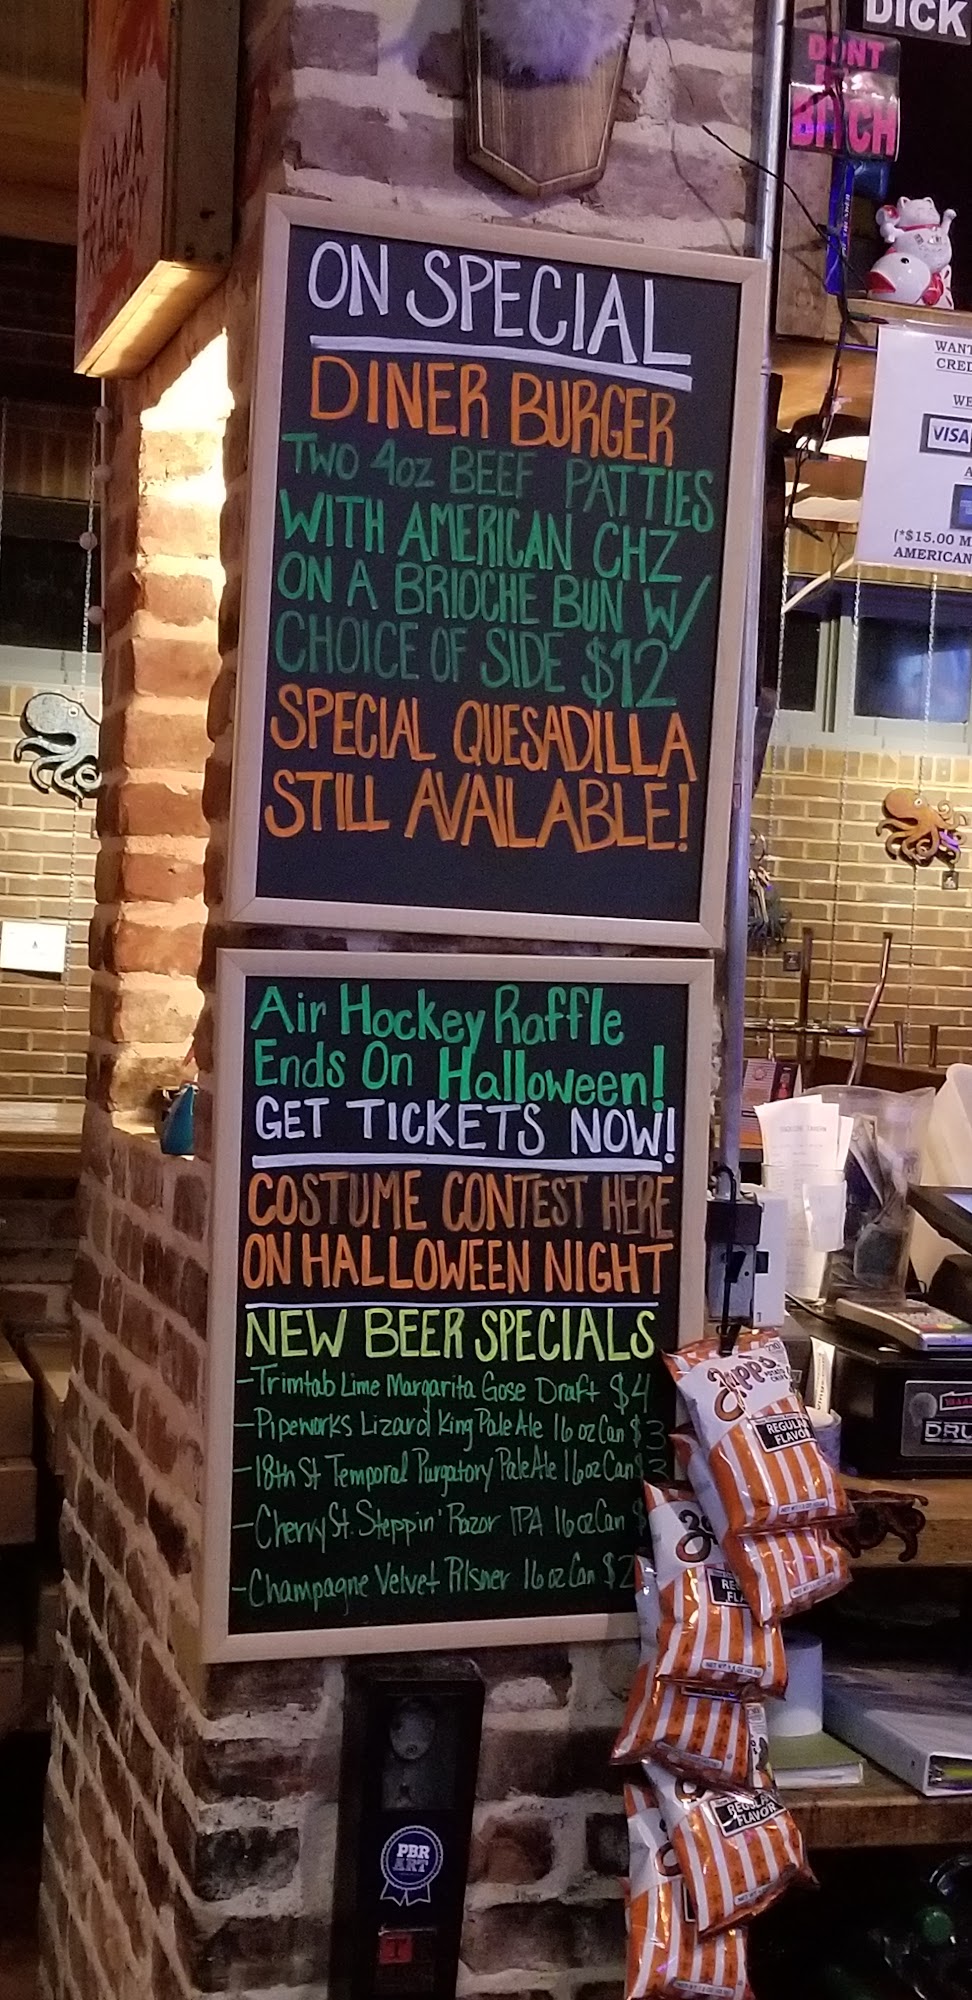 DICK
DONT
BITCH
ON SPECIAL
DINER BURGER
TWO 4oz BEEF PATTIES
WITH AMERICAN CHZ
ON A BRIOCHE BUN W/
CHOICE OF SIDE $12
SPECIAL QUESADILLA
STILL AVAILABLE!
WANT
CRED
WE
VISA
A
(*$15.00 M
AMERICAN
Air Hockey Raffle
Ends On Halloween!
GET TICKETS NOW!
COSTUME CONTEST HERE
ON HALLOWEEN NIGHT
NEW BEER SPECIALS
-Trimtab Lime Margarita Gose Draft $4
-Pipeworks Lizard King Pale Ale 16 oz Can $3
-18th St Temporal Purgatory Pale Ale 16oz Can $3
-Cherry St. Steppin' Razor IPA 16oz Can $
-Champagne Velvet Pilsner 16oz Can $2
Zapp's
POTATO CHIPS
REGULAR
FLAVOR
DRU
RE
FL
REGULAR
FLAVOR
PBR
ART